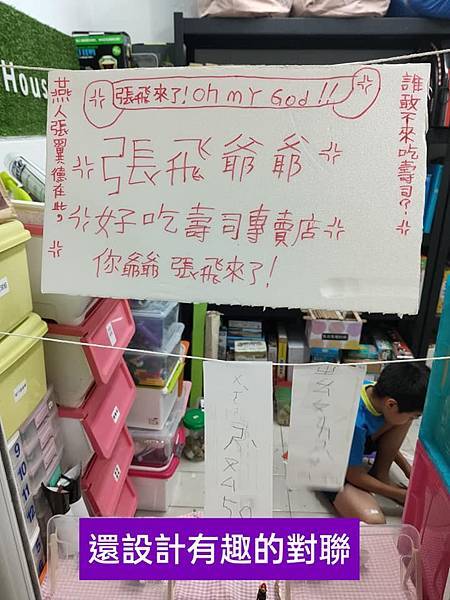 Hous
張飛來了!Oh my God!!
誰敢不來吃壽司?
燕人張翼德在此,
張飛爺爺
好吃壽司專賣店
你爺爺 張飛來了!
9
10
11
12
還設計有趣的對聯